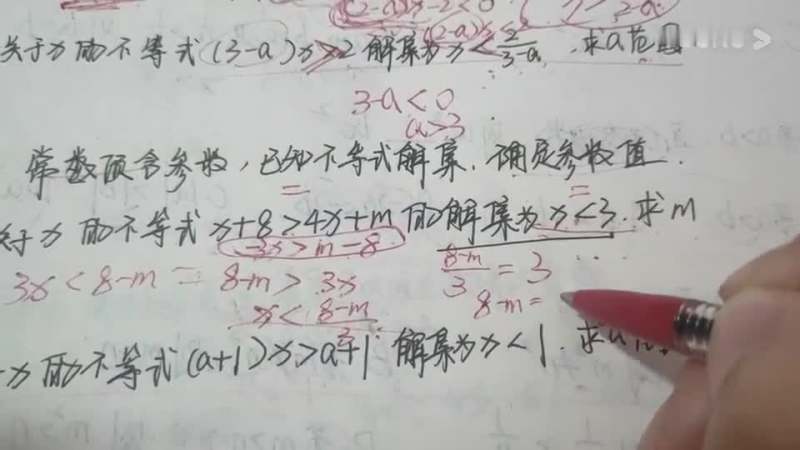 (2-a)x-2<0
关于x的不等式(3-a)x>2解集为x<2/(3-a).求a范围
3-a<0
a>3
常数项含参数,已知不等式解集.确定参数值.
关于x的不等式x+8>4x+m的解集为x<3.求m
-3x>m-8
3x<8-m = 8-m>3x
(8-m)/3=3
x<(8-m)/3
8-m=
x的不等式(a+1)x>a+1解集为x<1.求a